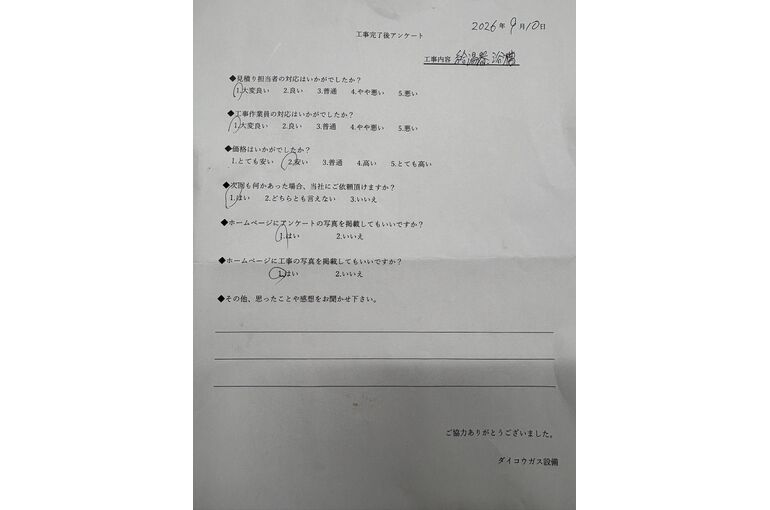 2026年9月10日
工事完了後アンケート
工事内容 給湯器 浴槽
◆見積り担当者の対応はいかがでしたか?
1.大変良い 2.良い 3.普通 4.やや悪い 5.悪い
◆工事作業員の対応はいかがでしたか?
1.大変良い 2.良い 3.普通 4.やや悪い 5.悪い
◆価格はいかがでしたか?
1.とても安い 2.安い 3.普通 4.高い 5.とても高い
◆次回も何かあった場合、当社にご依頼頂けますか?
1.はい 2.どちらとも言えない 3.いいえ
◆ホームページにアンケートの写真を掲載してもいいですか?
1.はい 2.いいえ
◆ホームページに工事の写真を掲載してもいいですか?
1.はい 2.いいえ
◆その他、思ったことや感想をお聞かせ下さい。
ご協力ありがとうございました。
ダイコウガス設備